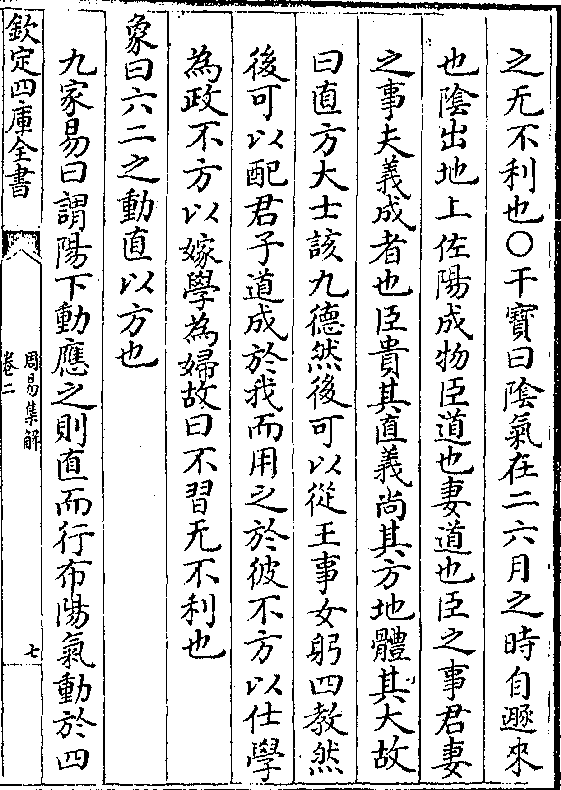 之无不利也○干寶曰隂氣在二六月之時自遯來
也隂出地上佐陽成物臣道也妻道也臣之事君妻
之事夫義成者也臣貴其直義尚其方地體其大故
曰直方大士該九德然後可以從王事女躬四教然
後可以配君子道成於我而用之於彼不方以仕學
為政不方以嫁學為婦故曰不習无不利也
象曰六二之動直以方也
九家易曰謂陽下動應之則直而行布陽氣動於四
欽定四庫全書
周易集解
卷二
七